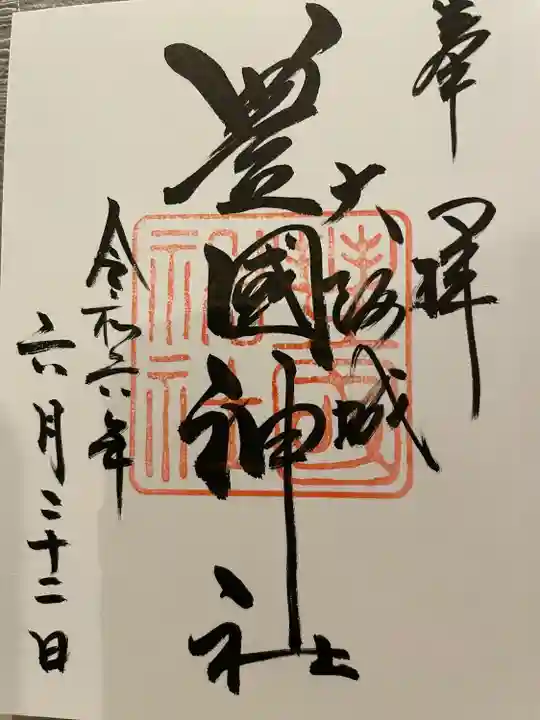 奉拝
大阪城上
豊國神社
令和六年
六月二十二日